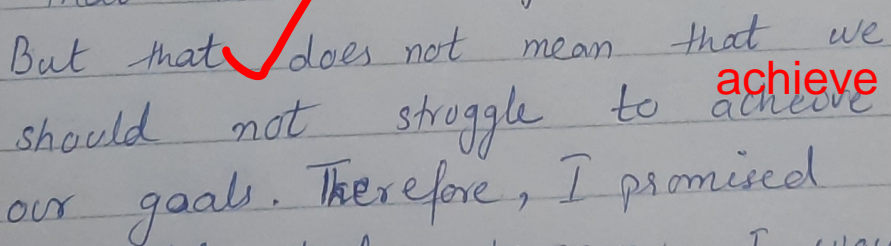 But that does not mean that we
achieve
should not struggle to acheove
our goals. Therefore, I promised